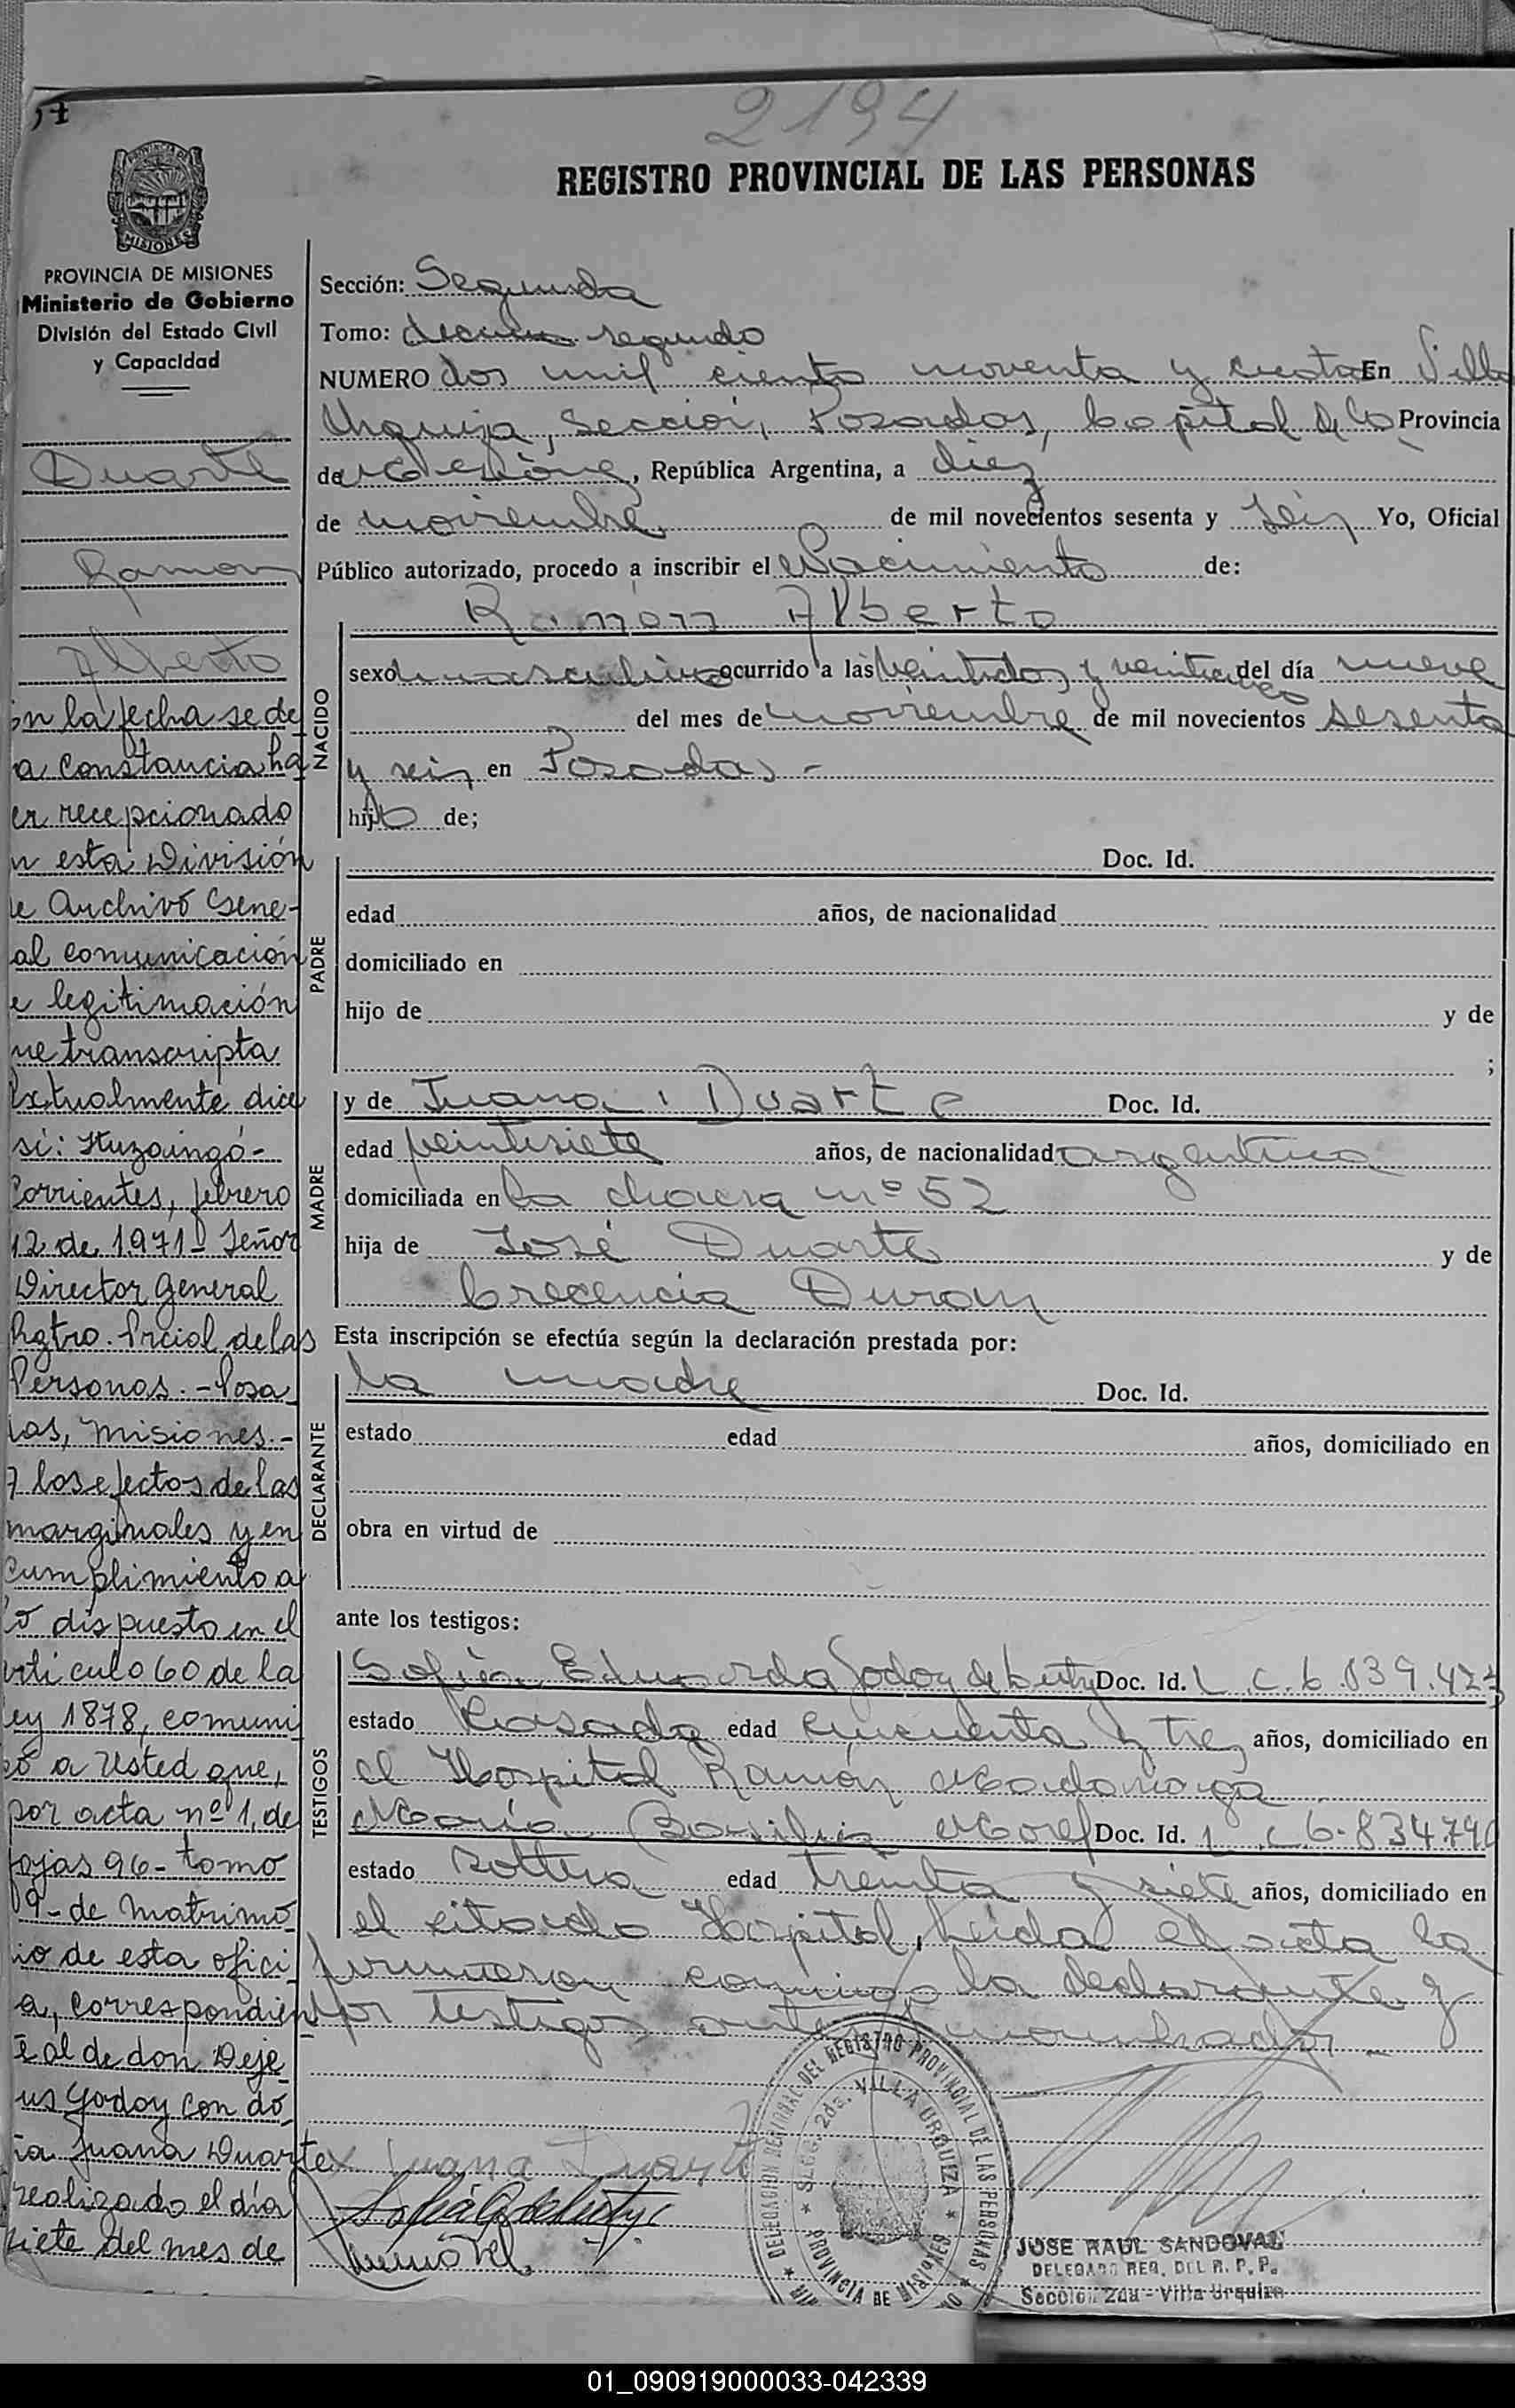 2194
REGISTRO PROVINCIAL DE LAS PERSONAS
PROVINCIA DE MISIONES
Ministerio de Gobierno
División del Estado Civil
y Capacidad
Duarte
Ramon
Alberto
en la fecha se de
a constancia ha
er recepcionado
n esta División
e Archivo Gene-
al comunicación
e legitimación
ue transcripta
textualmente dice
sí: Ituzaingó-
Corrientes, febrero
12 de 1971- Señor
Director General
Rgtro. Prcial de las
Personas.- Posa
das, Misiones.-
A los efectos de las
marginales y en
cumplimiento a
lo dispuesto en el
artículo 60 de la
ley 1878, comuni
co a Usted que,
por acta nº 1, de
fojas 96- tomo
19- de Matrimo
io de esta ofici
a, correspondien
te al de don Deje
us Godoy con do
ña Juana Duarte
realizado el día
siete del mes de
Sección: Segunda
Tomo: decimo segundo
NUMERO dos mil ciento noventa y cuatro En Villa
Urquiza, Sección, Posadas, Capital de la Provincia
de Misiones, República Argentina, a diez
de noviembre de mil novecientos sesenta y seis Yo, Oficial
Público autorizado, procedo a inscribir el Nacimiento de:
NACIDO
Ramon Alberto
sexo masculino ocurrido a las veintidos y veinticinco del día nueve
del mes de noviembre de mil novecientos sesenta
y seis en Posadas -
hijo de;
PADRE
Doc. Id.
edad años, de nacionalidad
domiciliado en
hijo de y de
;
MADRE
y de Juana Duarte Doc. Id.
edad veintisiete años, de nacionalidad argentina
domiciliada en la chacra nº 52
hija de José Duarte y de
Crecencia Duran
Esta inscripción se efectúa según la declaración prestada por:
DECLARANTE
la madre Doc. Id.
estado edad años, domiciliado en
obra en virtud de
ante los testigos:
TESTIGOS
Sofia Eduarda Godoy de Doc. Id. L.C. 6.839.423
estado Casada edad cincuenta y tres años, domiciliado en
el Hospital Ramón Madariaga
María Basilia Morel Doc. Id. L.C. 6.834.790
estado soltera edad treinta y siete años, domiciliado en
el citado Hospital, leída el acta la
firmaron conmigo la declarante y
los testigos antes nombrados -
Juana Duarte
DELEGACION REGIONAL DEL REGISTRO PROVINCIAL DE LAS PERSONAS
Secc. 2da. VILLA URQUIZA
PROVINCIA DE MISIONES
JOSE RAUL SANDOVAL
DELEGADO REG. DEL R. P. P.
Sección 2da - Villa Urquiza
01_090919000033-042339